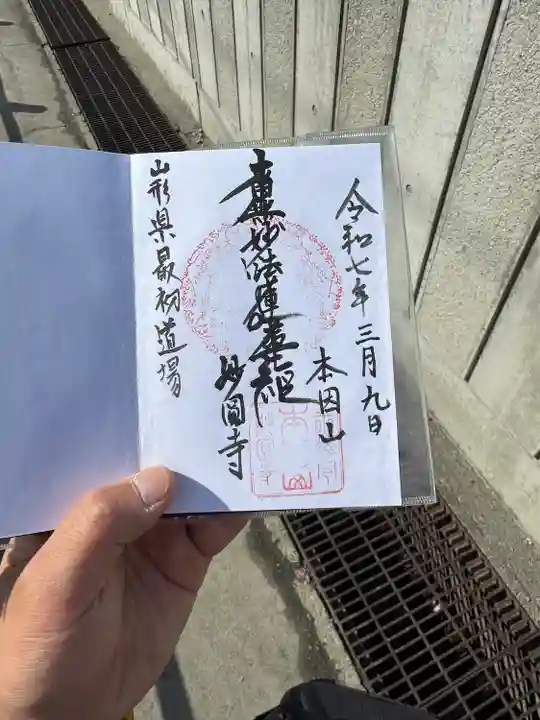 令和七年三月九日
本因山
南無妙法蓮華経
妙圓寺
山形県最初道場